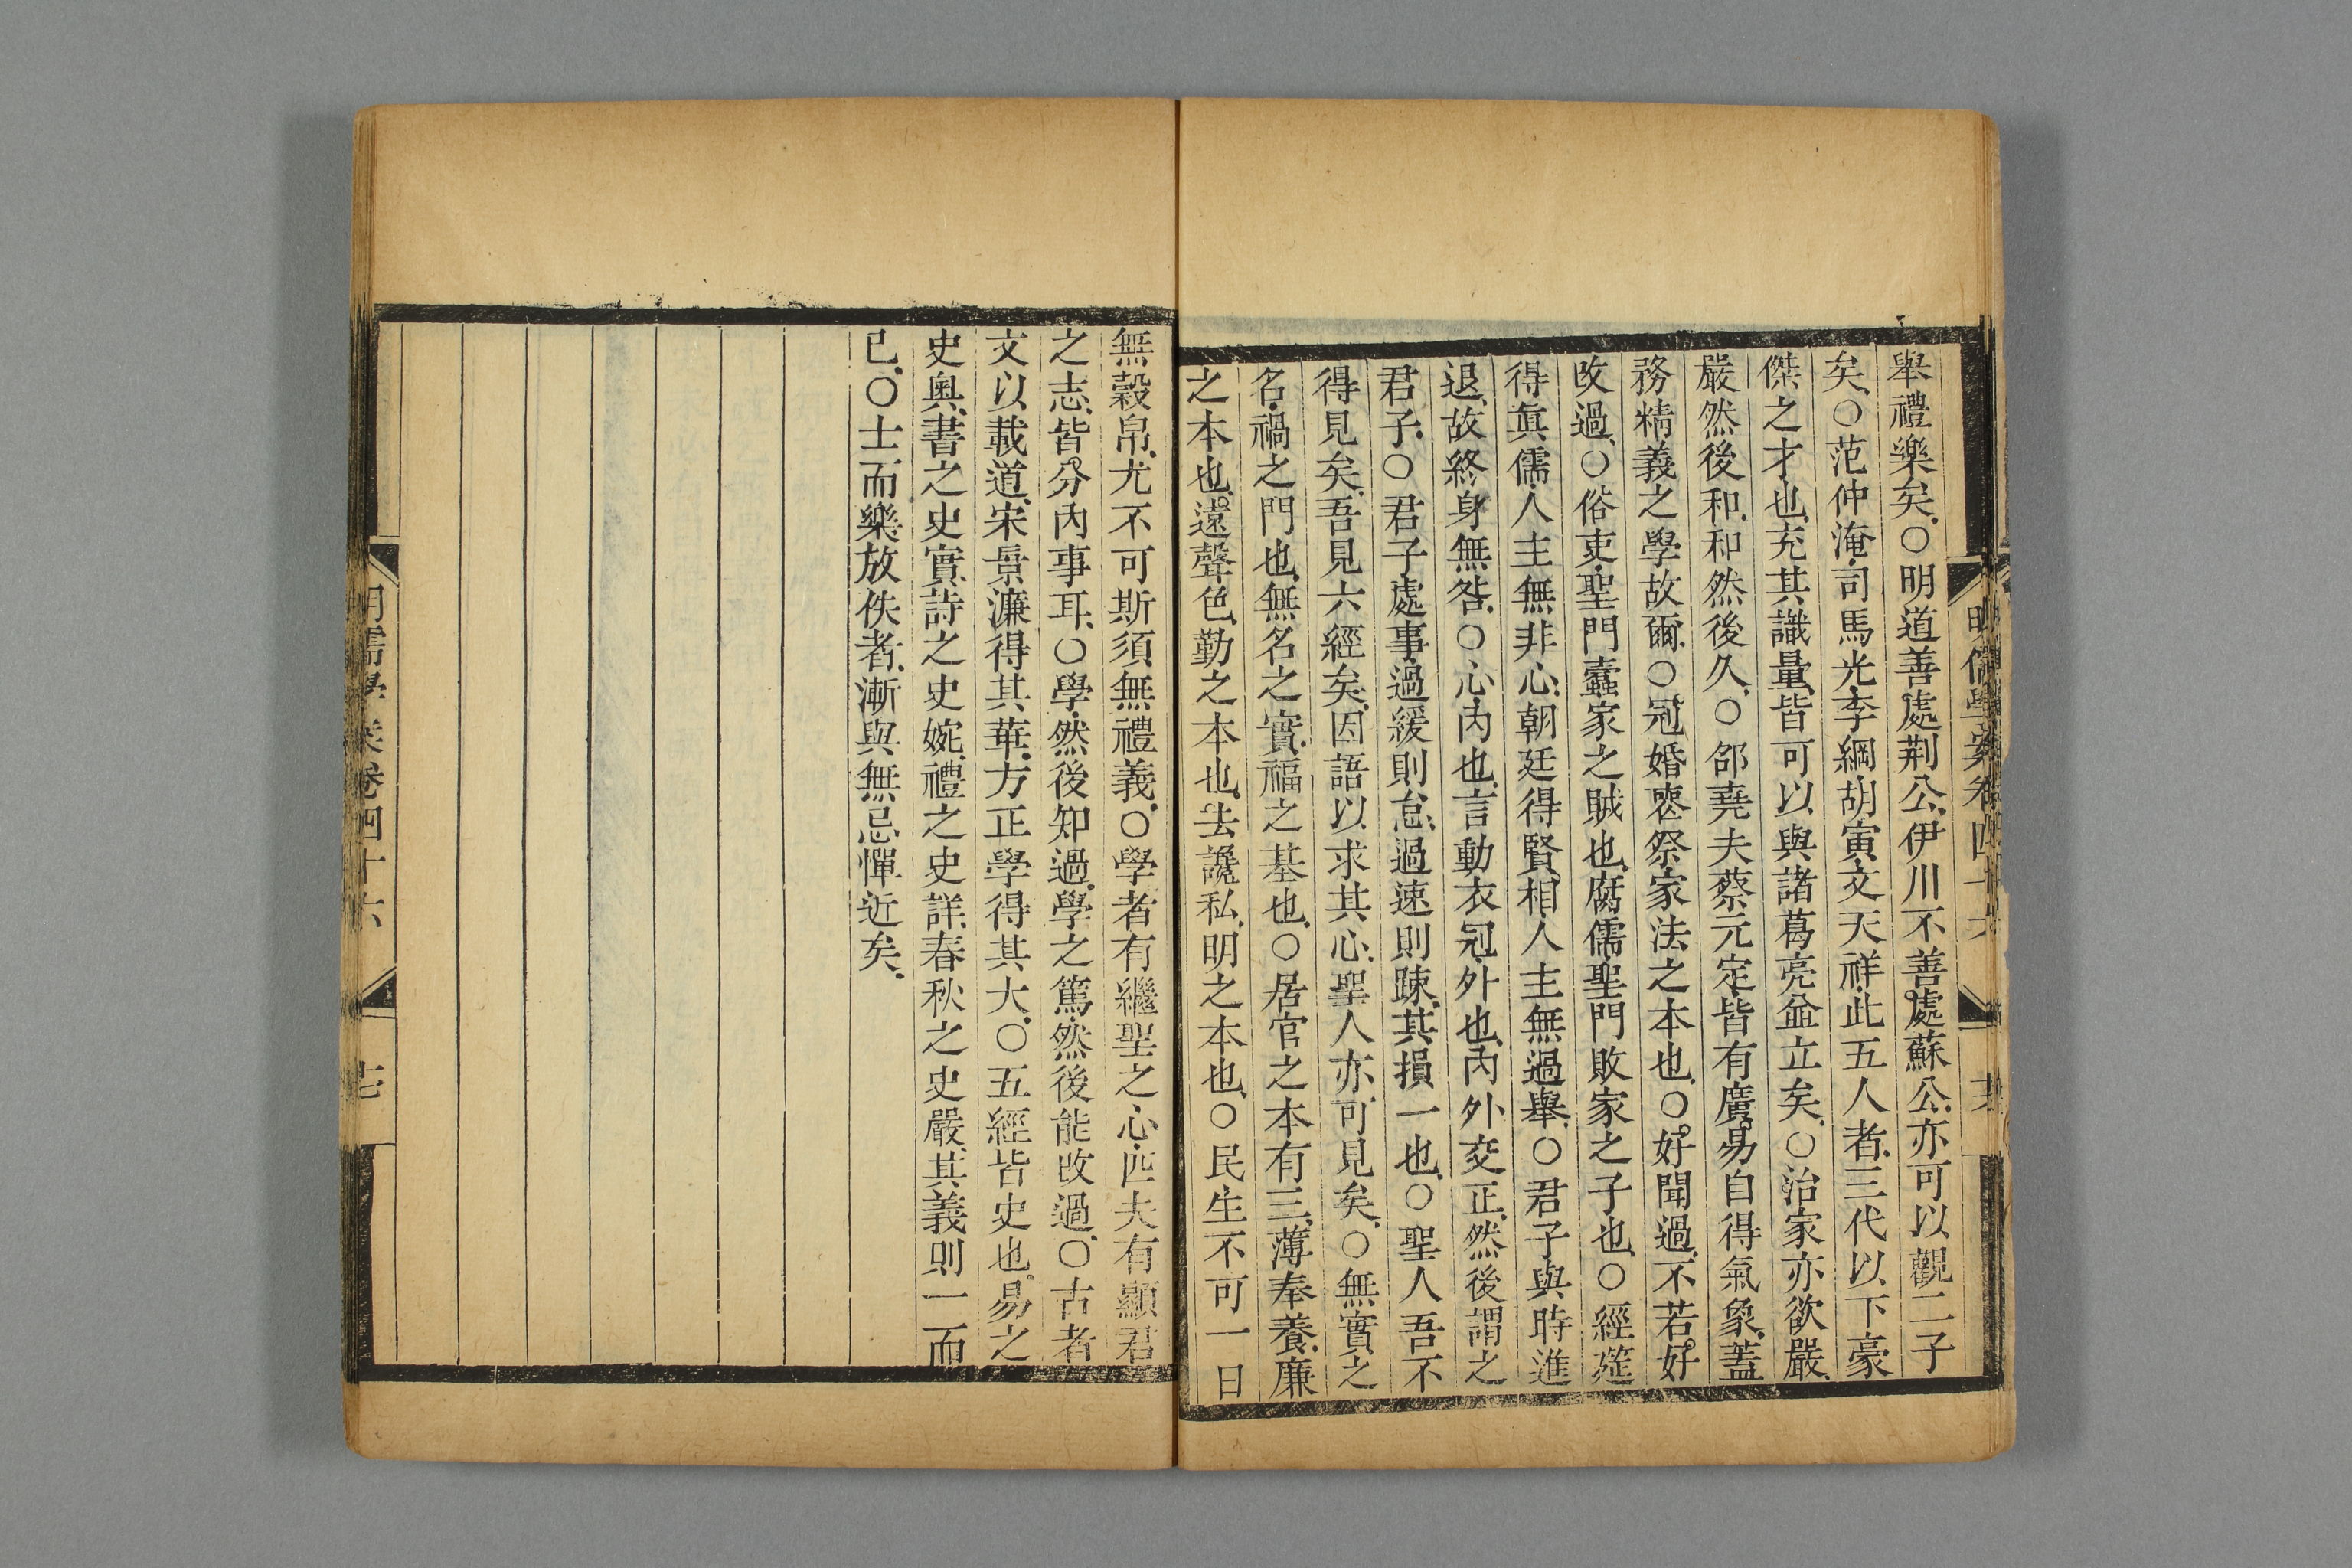 舉禮樂矣〇明道善處荆公伊川不善處蘇公亦可以觀二子
矣〇范仲淹司馬光李綱胡寅文天祥此五人者三代以下豪
傑之才也充其識量皆可以與諸葛亮並立矣〇治家亦欲嚴
嚴然後和和然後久〇邵堯夫蔡元定皆有廣易自得氣象蓋
務精義之學故爾〇冠婚喪祭家法之本也〇好聞過不若好
改過〇俗吏聖門蠹家之賊也腐儒聖門敗家之子也〇經筵
得眞儒人主無非心朝廷得賢相人主無過舉〇君子與時進
退故終身無咎〇心內也言動衣冠外也內外交正然後謂之
君子〇君子處事過緩則怠過速則踈其損一也〇聖人吾不
得見矣吾見六經矣因語以求其心聖人亦可見矣〇無實之
名禍之門也無名之實福之基也〇居官之本有三薄奉養廉
之本也遠聲色勤之本也去讒私明之本也〇民生不可一日
無穀帛尤不可斯須無禮義〇學者有繼聖之心匹夫有顯君
之志皆分內事耳〇學然後知過學之篤然後能改過〇古者
文以載道宋景濂得其華方正學得其大〇五經皆史也易之
史奧書之史實詩之史婉禮之史詳春秋之史嚴其義則一而
已〇士而樂放佚者漸與無忌憚近矣
明儒學案卷四十六